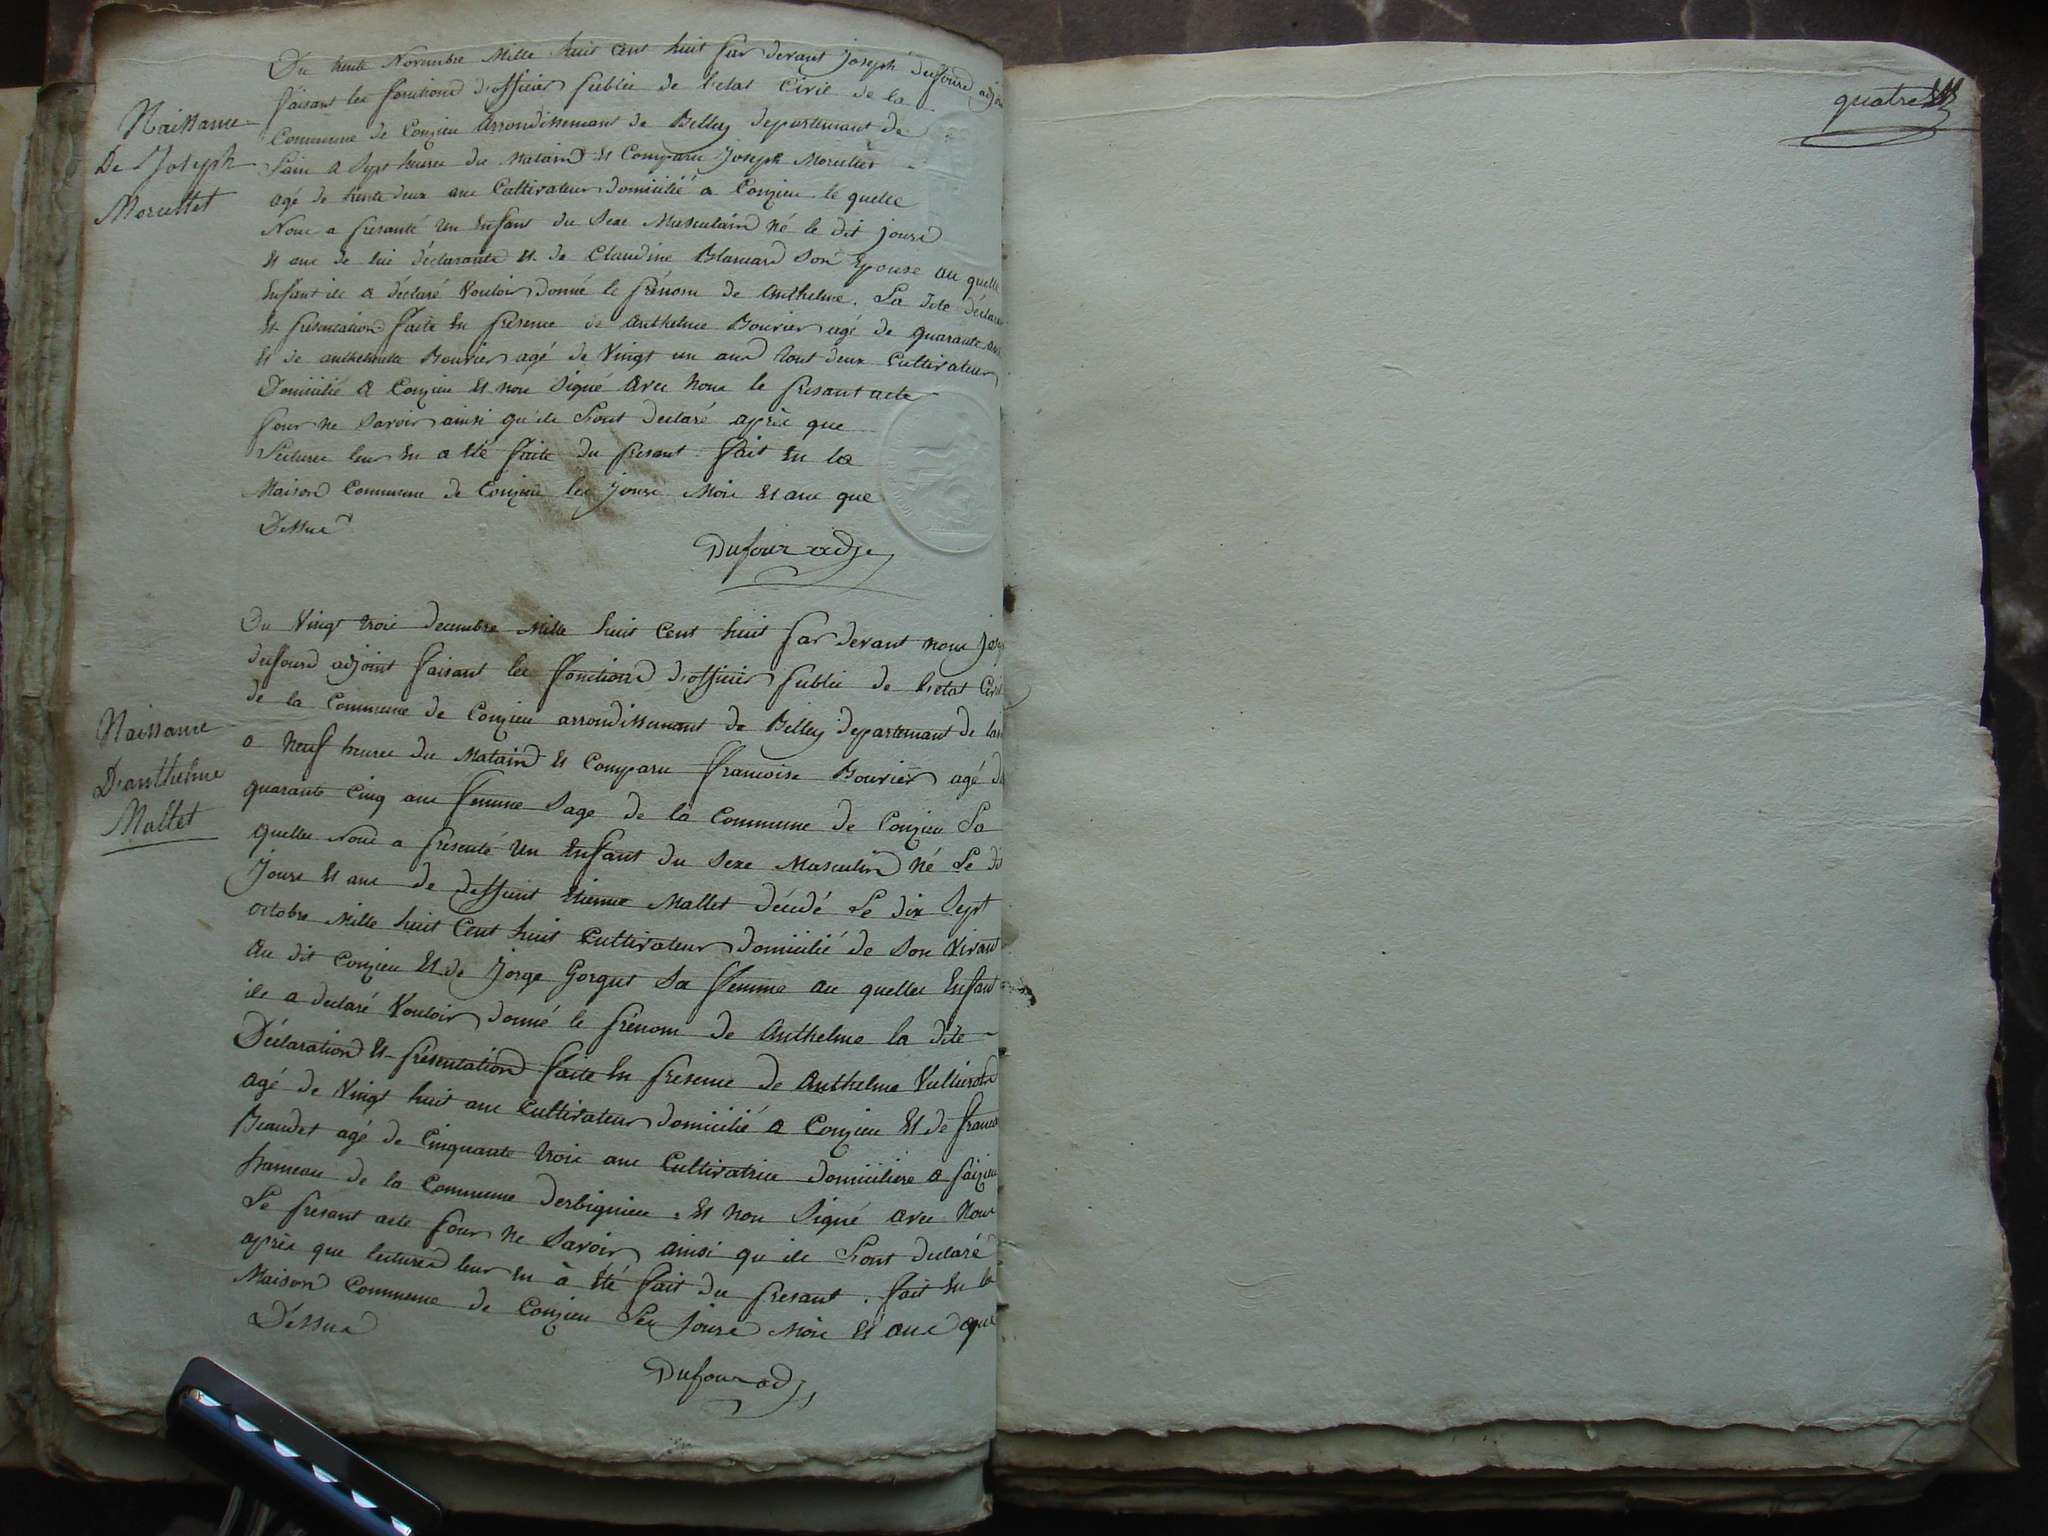 Du trente Novembre Mille huit cent huit par devant joseph dufourd adjoint
faisant les fonctions d'officier public de l'etat Civil de la
Naissance
Commune de Conzieu arrondissemant de Belley departemant de
De Joseph
Lain a Sept heures du Matain Et Comparu Joseph
Morcellet
agé de trente deux ans Cultivateur domicilié a Conzieu le quelle
Nous a presanté un Enfant du Sexe né le dit jours
Et ans de lui déclarante Et de Claudine Son Epouse au quelle
Enfant ils a déclaré Vouloir donné le prénom de Anthelme. La dite
Et presentation faite En présence de Anthelme Bouvier agé de quarante ans
Et de Bouvier agé de Vingt un ans tout deux Cultivateurs
Domicilié a Conzieu Et non Signé avec nous le presant acte
pour ne Savoir ainsi qu'ils L'ont declaré après que
Lectures leur En a été faite du presant. fait En la
Maison Commune de Conzieu les Jours Mois Et ans que
Dessus
Dufour adj
Du Vingt trois decembre Mille huit Cent huit par devant nous
dufourd adjoint faisant les fonctions d'officier public de l'etat Civil
de la Commune de Conzieu arrondissemant de Belley departemant de
a Neuf heures du Matain Et Comparu francoise Bouvier agé de
Naissance
quarante Cinq ans femme Sage de la Commune de Conzieu La
D'anthelme
quelles Nous a presenté un Enfant du Sexe Masculin né Le dit
Mallet
Jours Et ans de deffunt Etienne Mallet décédé Le dix Sept
octobre Mille huit Cent huit Cultivateur domicilié de Son Vivant
Au dit Conzieu Et de Sa femme au quelles Enfant
ils a declaré Vouloir donné le prénom de Anthelme la dite
Déclaration Et présentation faite En presence de Anthelme
agé de Vingt huit ans Cultivateur domicilié a Conzieu Et de
agé de Cinquante trois ans Cultivatrice domiciliere a
hameau de la Commune . Et non Signé avec Nous
Le presant acte pour ne Savoir ainsi qu ils L'ont declaré
après que lectures leur En à été fait du presant. fait En la
Maison Commune de Conzieu Les Jours Mois Et ans que
Déssus
Dufour adj
quatre